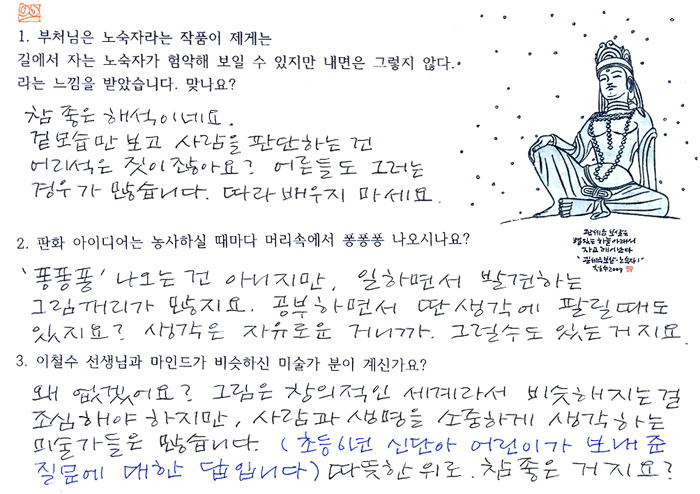 1. 부처님은 노숙자라는 작품이 제게는
길에서 자는 노숙자가 험악해 보일 수 있지만 내면은 그렇지 않다.
라는 느낌을 받았습니다. 맞나요?
참 좋은 해석이네요.
겉모습만 보고 사람을 판단하는 건
어리석은 짓이잖아요? 어른들도 그러는
경우가 많습니다. 따라 배우지 마세요.
관세음보살은
하늘아래서
자고 깨어
2009
2. 판화 아이디어는 농사하실 때마다 머리속에서 퐁퐁퐁 나오시나요?
'퐁퐁퐁' 나오는 건 아니지만, 일하면서 발견하는
그림꺼리가 많지요. 공부하면서 딴 생각에 팔릴때도
있지요? 생각은 자유로운 거니까. 그럴수도 있는거지요.
3. 이철수 선생님과 마인드가 비슷하신 미술가 분이 계신가요?
왜 없겠어요? 그림은 창의적인 세계라서 비슷해지는걸
조심해야 하지만, 사람과 생명을 소중하게 생각하는
미술가들은 많습니다. (초등6년 신단아 어린이가 보내준
질문에 대한 답입니다) 따뜻한 위로. 참 좋은 거지요?